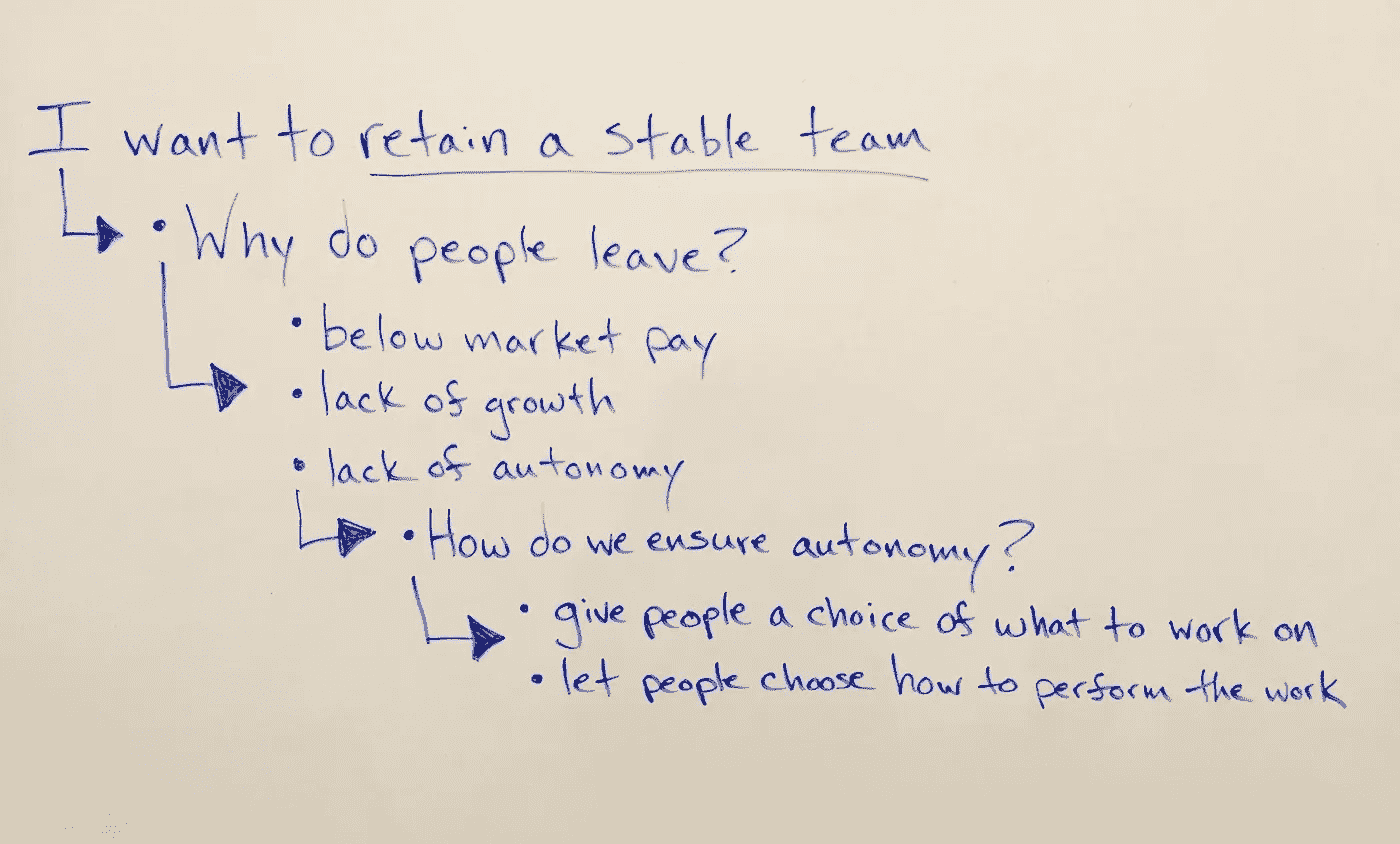 I want to retain a stable team
• Why do people leave?
• below market pay
• lack of growth
• lack of autonomy
• How do we ensure autonomy?
• give people a choice of what to work on
• let people choose how to perform the work